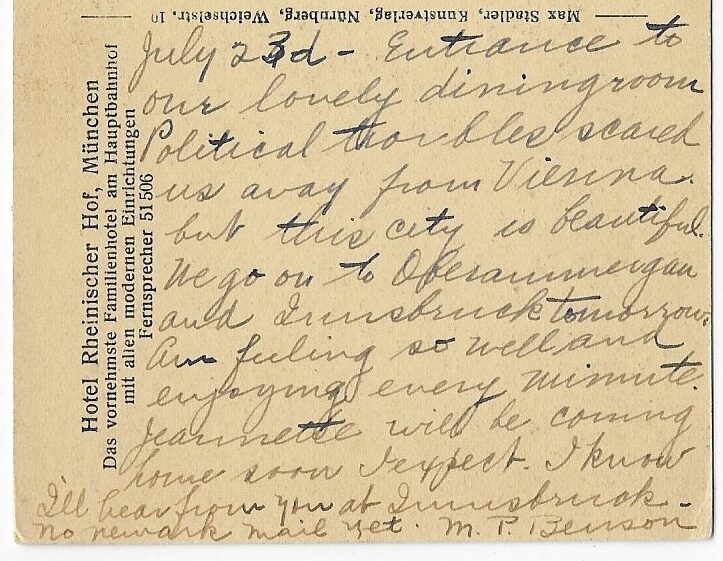 Max Stadler, Kunstverlag, Nürnberg, Weichselstr. 10
Hotel Rheinischer Hof, München
Das vornehmste Familienhotel am Hauptbahnhof
mit allen modernen Einrichtungen
Fernsprecher 51 506
July 23d - Entrance to
our lovely diningroom
Political troubles scared
us away from Vienna.
but this city is beautiful.
We go on to Oberammergau
and Innsbruck tomorrow.
Am feeling so well and
enjoying every minute.
Jeannette will be coming
home soon I expect. I know
I'll hear from you at Innsbruck -
No newark mail yet. M. P. Benson